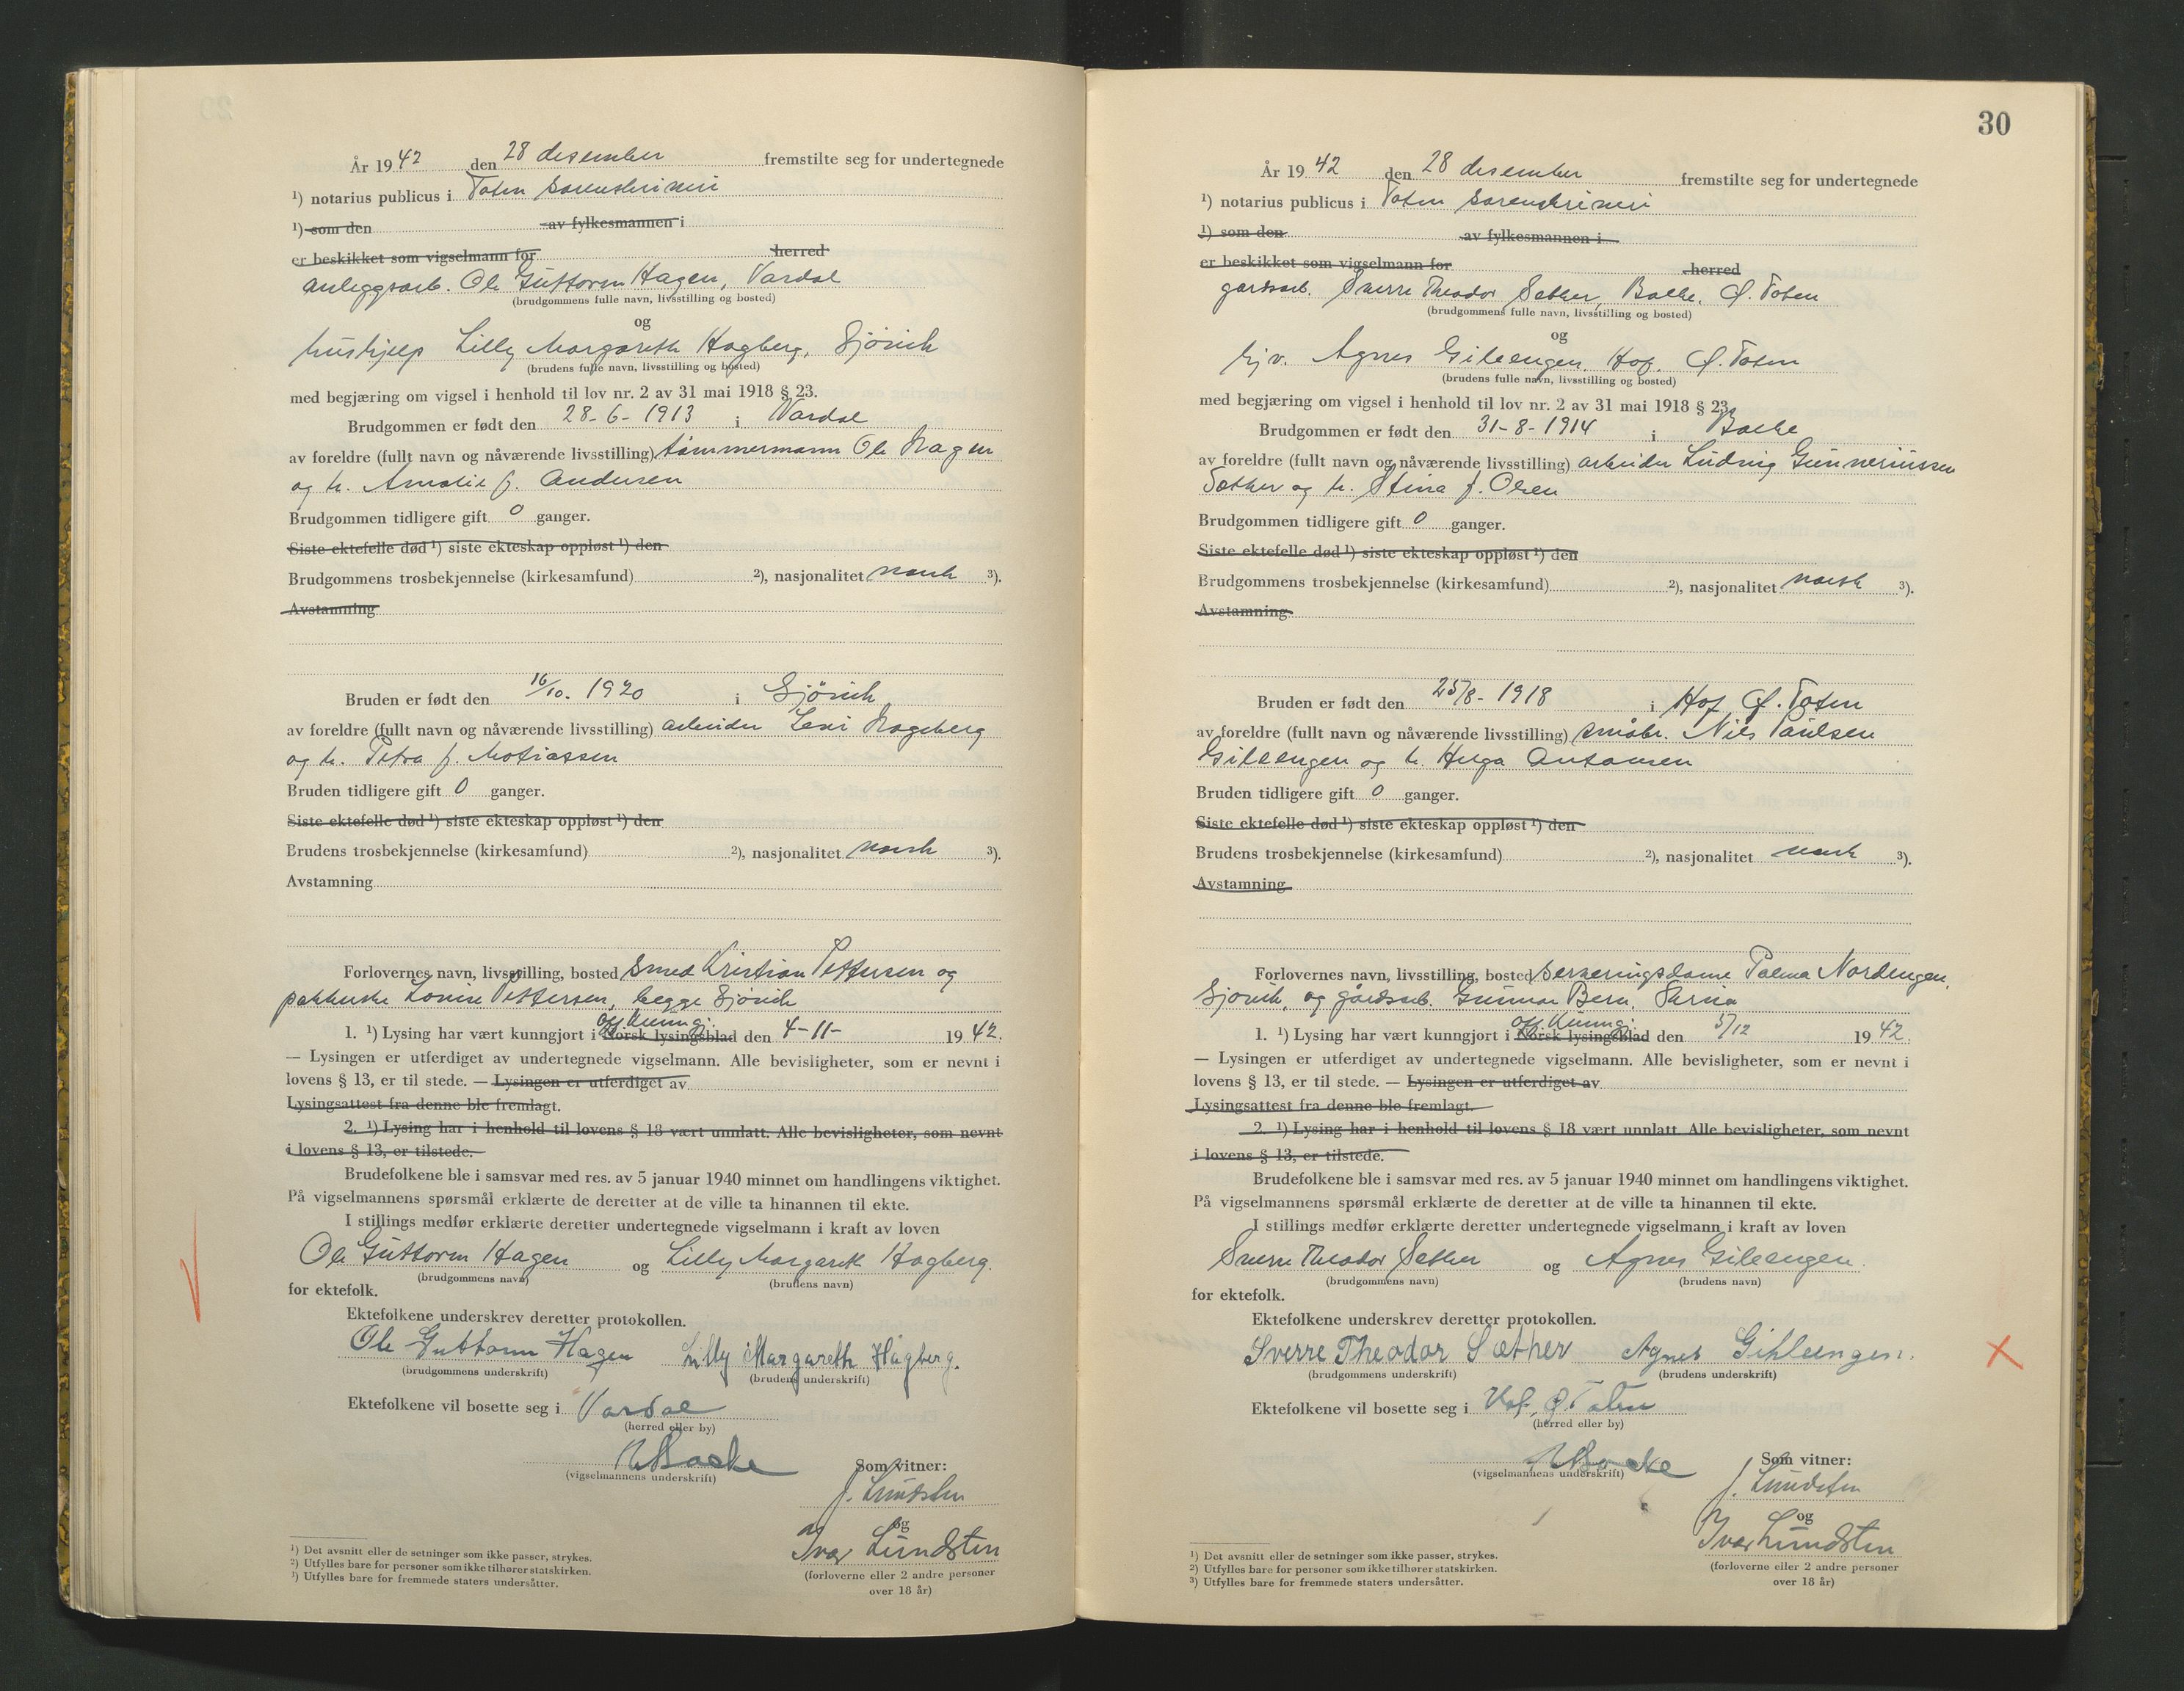 År 1942 den 28 desember fremstilte seg for undertegnede
¹) notarius publicus i Toten sorenskriveri
¹) som den av fylkesmannen i
er beskikket som vigselmann for herred
anleggsarb. Ole Guttorm Hagen, Vardal
(brudgommens fulle navn, livsstilling og bosted)
og
hushjelp Lilly Margareth Hagberg, Gjövik
(brudens fulle navn, livsstilling og bosted)
med begjæring om vigsel i henhold til lov nr. 2 av 31 mai 1918 § 23.
Brudgommen er født den 28-6-1913 i Vardal
av foreldre (fullt navn og nåværende livsstilling) tømmermann Ole Hagen
og h. Amalie f. Andersen
Brudgommen tidligere gift 0 ganger.
Siste ektefelle død ¹) siste ekteskap oppløst ¹) den
Brudgommens trosbekjennelse (kirkesamfund) ²), nasjonalitet norsk ³).
Avstamning
Bruden er født den 16/10. 1920 i Gjövik
av foreldre (fullt navn og nåværende livsstilling) arbeider Hagberg
og h. Petra f. Matiassen
Bruden tidligere gift 0 ganger.
Siste ektefelle død ¹) siste ekteskap oppløst ¹) den
Brudens trosbekjennelse (kirkesamfund) ²), nasjonalitet norsk ³).
Avstamning
Forlovernes navn, livsstilling, bosted smed Kristian Pettersen og
Lovise Pettersen, begge Gjövik
off. kunngj.
1. ¹) Lysing har vært kunngjort i Norsk lysingsblad den 4-11- 1942.
— Lysingen er utferdiget av undertegnede vigselmann. Alle bevisligheter, som er nevnt i
lovens § 13, er til stede. — Lysingen er utferdiget av
Lysingsattest fra denne ble fremlagt.
2. ¹) Lysing har i henhold til lovens § 18 vært unnlatt. Alle bevisligheter, som nevnt
i lovens § 13, er tilstede.
Brudefolkene ble i samsvar med res. av 5 januar 1940 minnet om handlingens viktighet.
På vigselmannens spørsmål erklærte de deretter at de ville ta hinannen til ekte.
I stillings medfør erklærte deretter undertegnede vigselmann i kraft av loven
Ole Guttorm Hagen og Lilly Margareth Hagberg.
(brudgommens navn) (brudens navn)
for ektefolk.
Ektefolkene underskrev deretter protokollen.
Ole Guttorm Hagen Lilly Margareth Hagberg.
(brudgommens underskrift) (brudens underskrift)
Ektefolkene vil bosette seg i Vardal
(herred eller by)
(vigselmannens underskrift)
Som vitner:
J. Lundsten
og
Ivar Lundsten
(forloverne eller 2 andre personer
over 18 år)
¹) Det avsnitt eller de setninger som ikke passer, strykes.
²) Utfylles bare for personer som ikke tilhører statskirken.
³) Utfylles bare for fremmede staters undersåtter.
30
År 1942 den 28 desember fremstilte seg for undertegnede
¹) notarius publicus i Toten sorenskriveri
¹) som den av fylkesmannen i
er beskikket som vigselmann for herred
gardsarb. Sverre Theodor Sæther, Balke, Ø. Toten
(brudgommens fulle navn, livsstilling og bosted)
og
hjv. Agnes Gileengen, Hof, Ø. Toten
(brudens fulle navn, livsstilling og bosted)
med begjæring om vigsel i henhold til lov nr. 2 av 31 mai 1918 § 23.
Brudgommen er født den 31-8-1914 i Balke
av foreldre (fullt navn og nåværende livsstilling) arbeider Ludvig Gunneriussen
Sæther og h. Stina f. Olsen
Brudgommen tidligere gift 0 ganger.
Siste ektefelle død ¹) siste ekteskap oppløst ¹) den
Brudgommens trosbekjennelse (kirkesamfund) ²), nasjonalitet norsk ³).
Avstamning
Bruden er født den 25/8-1918 i Hof, Ø. Toten
av foreldre (fullt navn og nåværende livsstilling) småbr. Nils Paulsen
Gileengen og h. Helga Antonsen
Bruden tidligere gift 0 ganger.
Siste ektefelle død ¹) siste ekteskap oppløst ¹) den
Brudens trosbekjennelse (kirkesamfund) ²), nasjonalitet norsk ³).
Avstamning
Forlovernes navn, livsstilling, bosted serveringsdame Palma Nordengen,
Gjövik, og gårdsarb. Gunnar Bern,
off. kunngj.
1. ¹) Lysing har vært kunngjort i Norsk lysingsblad den 5/12 1942.
— Lysingen er utferdiget av undertegnede vigselmann. Alle bevisligheter, som er nevnt i
lovens § 13, er til stede. — Lysingen er utferdiget av
Lysingsattest fra denne ble fremlagt.
2. ¹) Lysing har i henhold til lovens § 18 vært unnlatt. Alle bevisligheter, som nevnt
i lovens § 13, er tilstede.
Brudefolkene ble i samsvar med res. av 5 januar 1940 minnet om handlingens viktighet.
På vigselmannens spørsmål erklærte de deretter at de ville ta hinannen til ekte.
I stillings medfør erklærte deretter undertegnede vigselmann i kraft av loven
Sverre Theodor Sæther og Agnes Gileengen.
(brudgommens navn) (brudens navn)
for ektefolk.
Ektefolkene underskrev deretter protokollen.
Sverre Theodor Sæther Agnes Gihleengen.
(brudgommens underskrift) (brudens underskrift)
Ektefolkene vil bosette seg i Hof, Ø. Toten
(herred eller by)
(vigselmannens underskrift)
Som vitner:
J. Lundsten
og
Ivar Lundsten
(forloverne eller 2 andre personer
over 18 år)
¹) Det avsnitt eller de setninger som ikke passer, strykes.
²) Utfylles bare for personer som ikke tilhører statskirken.
³) Utfylles bare for fremmede staters undersåtter.